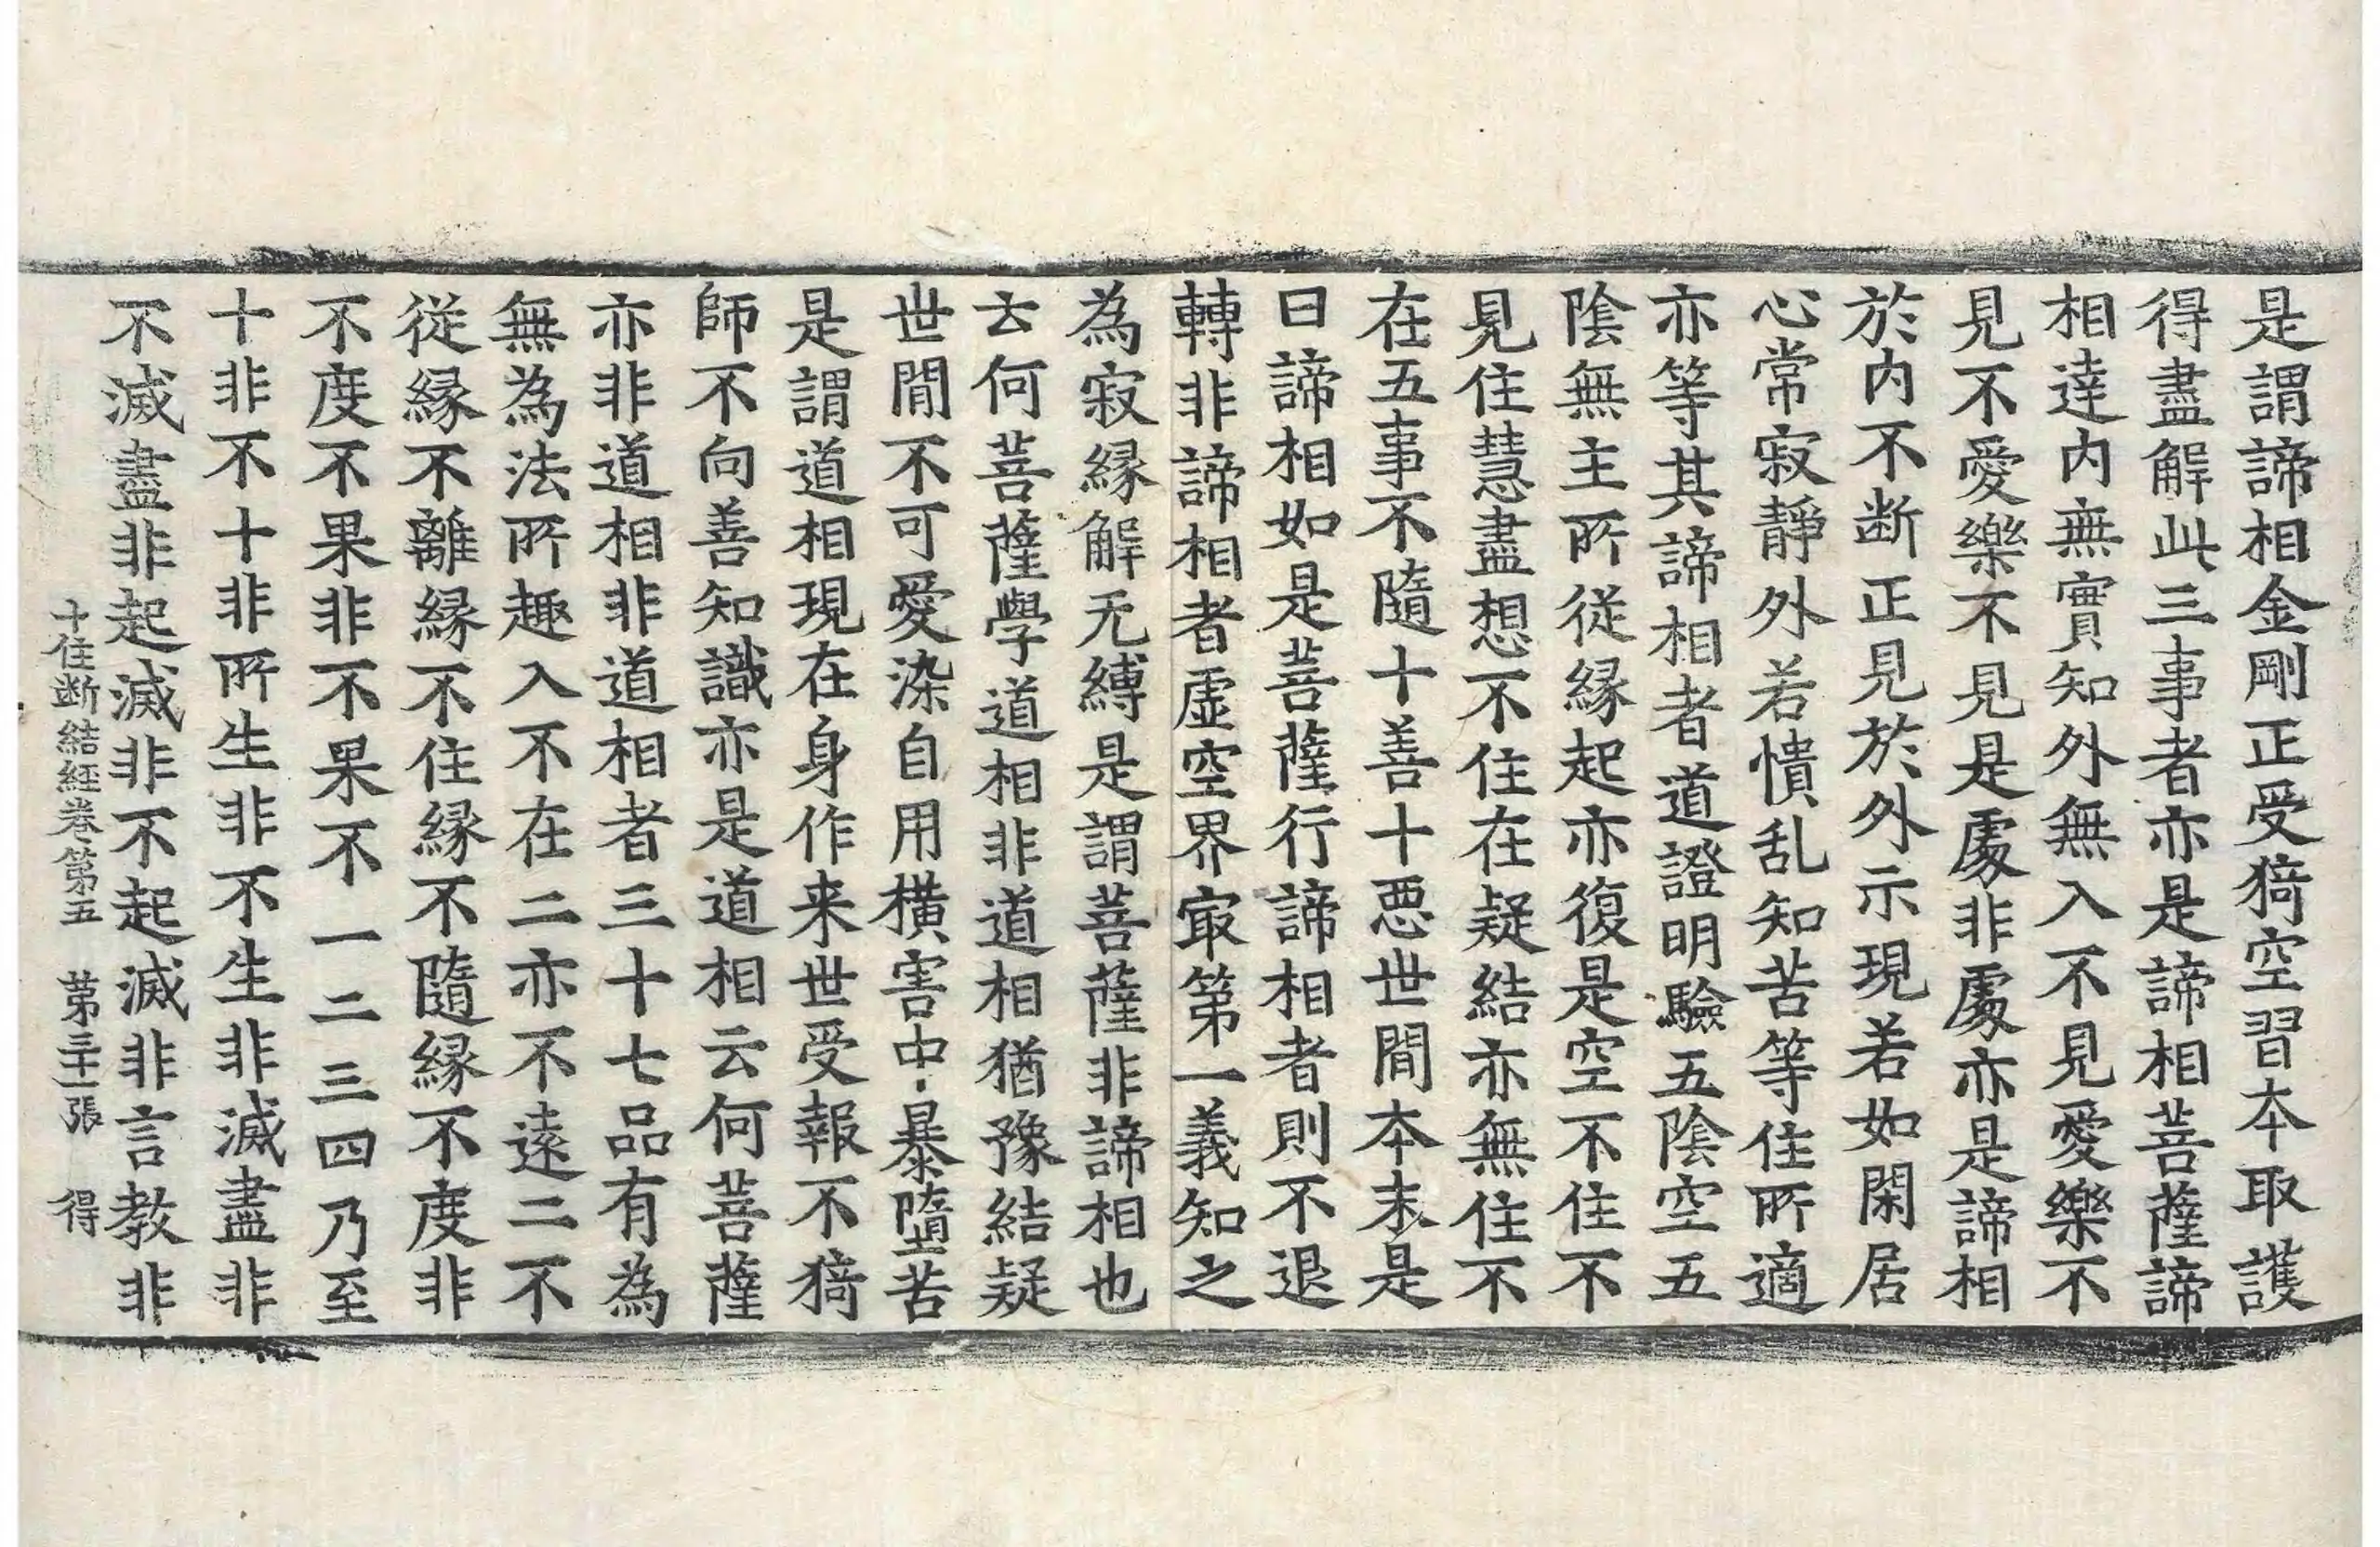 是謂諦相金剛正受猗空習本取護
得盡解此三事者亦是諦相菩薩諦
相達内無實知外無入不見愛樂不
見不愛樂不見是處非處亦是諦相
於内不断正見於外示現若如閑居
心常寂靜外若憒乱知苦等住所適
亦等其諦相者道證明驗五陰空五
陰無主所從緣起亦復是空不住不
見住慧盡想不住在疑結亦無住不
在五事不隨十善十惡世間本末是
曰諦相如是菩薩行諦相者則不退
轉非諦相者虛空界㝡第一義知之
為寂緣解无縛是謂菩薩非諦相也
云何菩薩學道相非道相猶豫結疑
世間不可愛染自用橫害中暴墮苦
是謂道相現在身作来世受報不猗
師不向善知識亦是道相云何菩薩
亦非道相非道相者三十七品有為
無為法所趣入不在二亦不遠二不
從緣不離緣不住緣不隨緣不度非
不度不果非不果不一二三四乃至
十非不十非所生非不生非滅盡非
不滅盡非起滅非不起滅非言教非
十住断結経卷第五 第三十一張 得